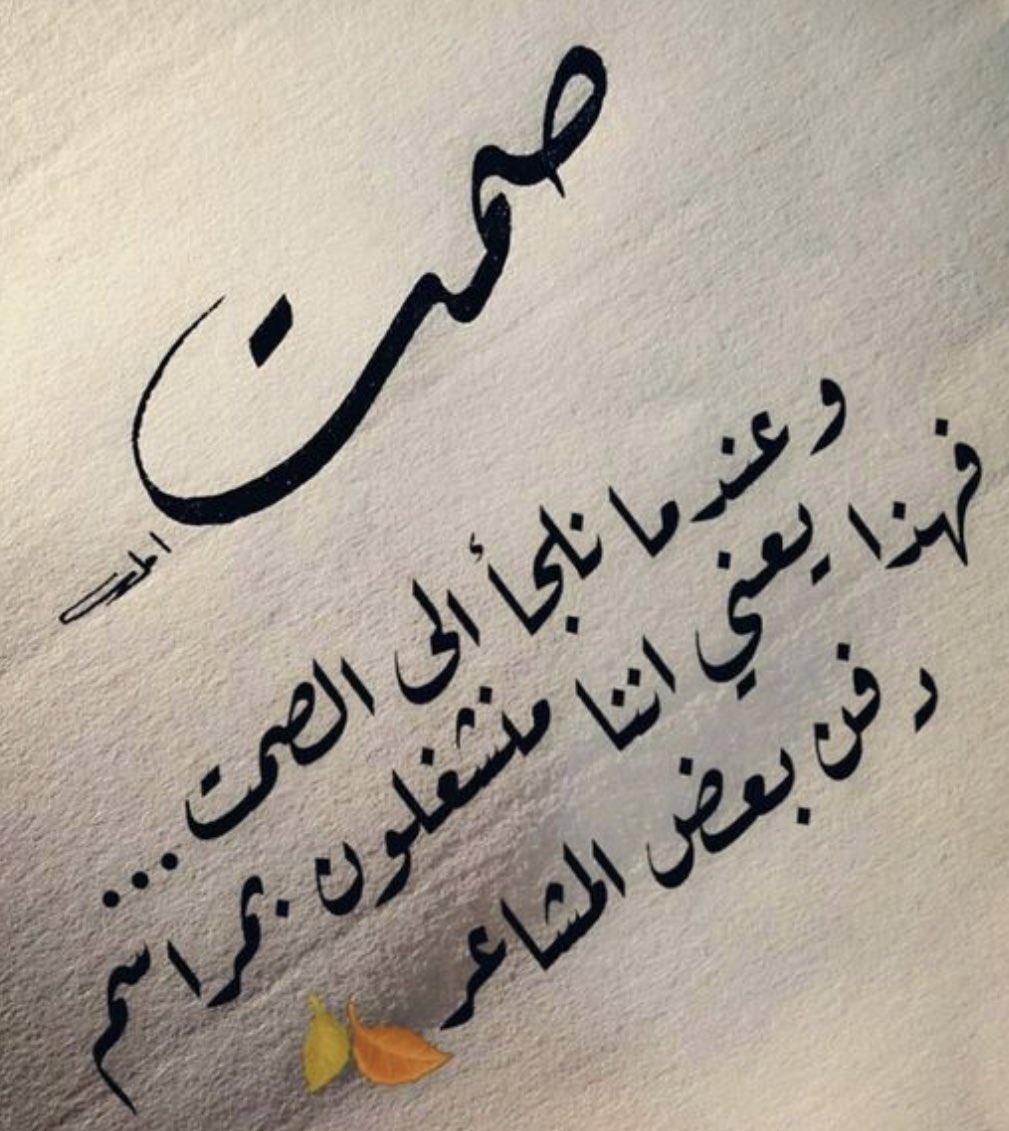 صمت
وعندما نلجأ الى الصمت...
فهذا يعني اننا منشغلون بمراسم
دفن بعض المشاعر